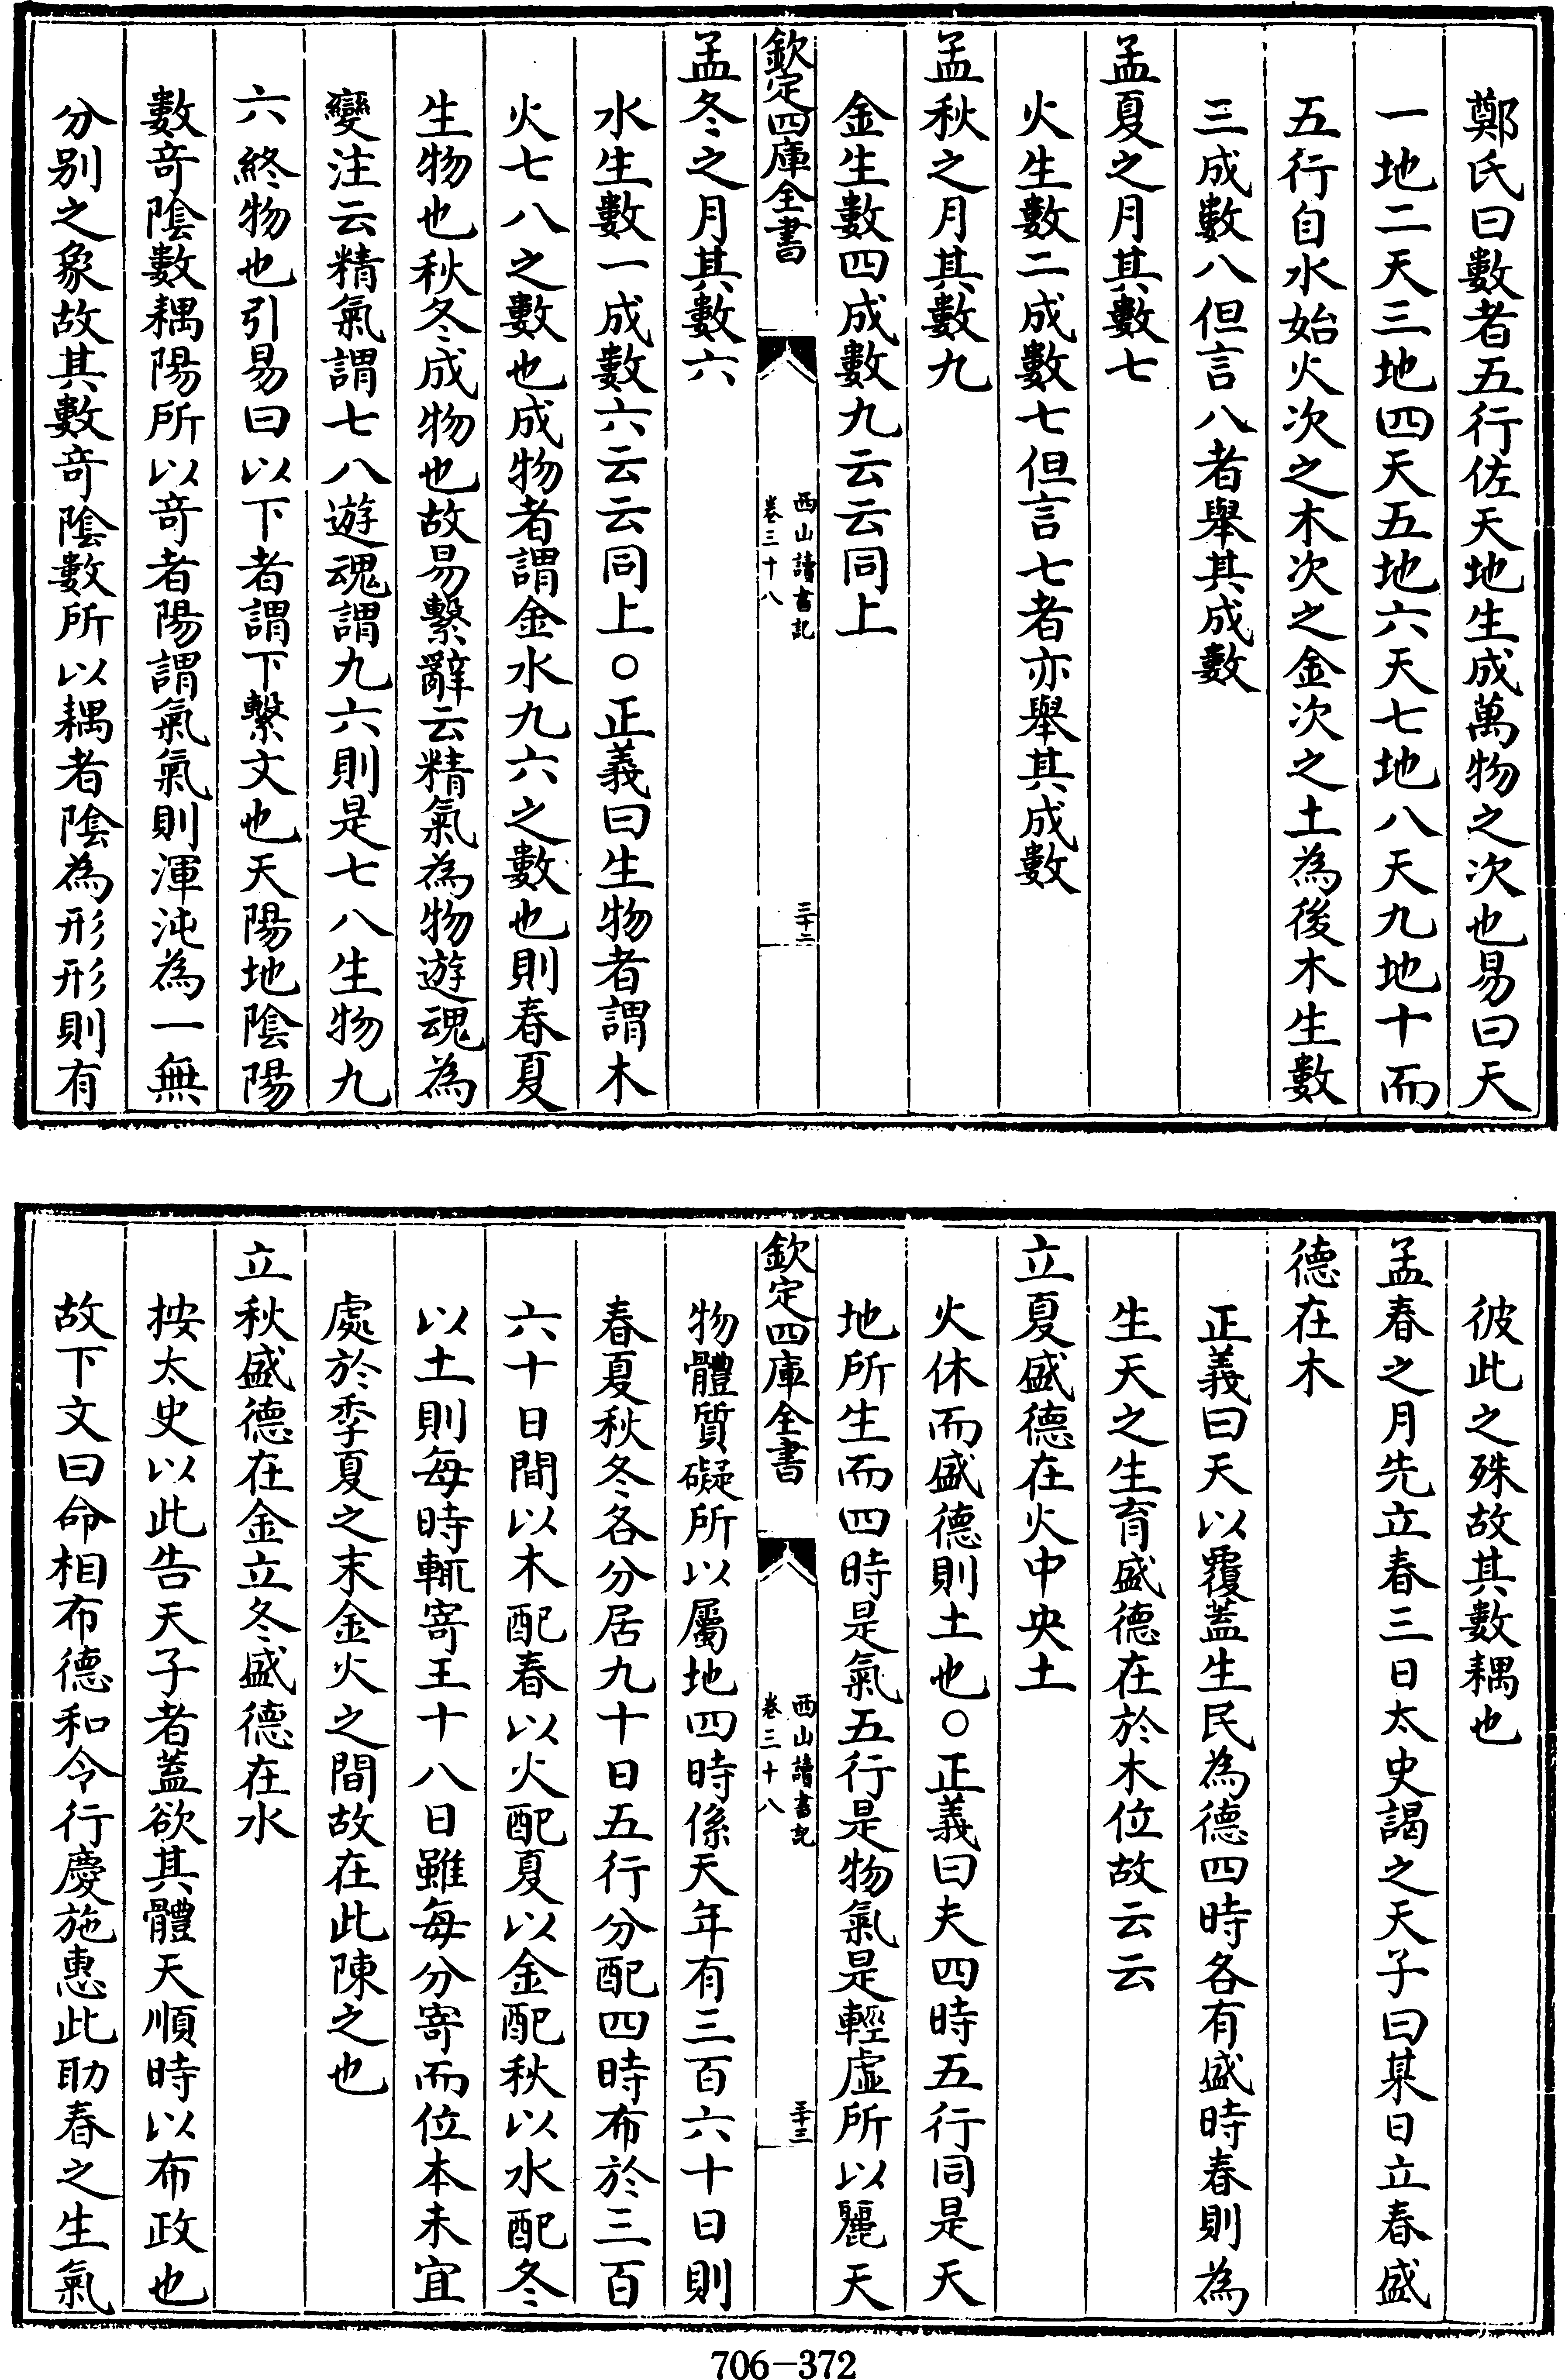 鄭氏曰數者五行佐天地生成萬物之次也易曰天
一地二天三地四天五地六天七地八天九地十而
五行自水始火次之木次之金次之土為後木生數
三成數八但言八者舉其成數
孟夏之月其數七
火生數二成數七但言七者亦舉其成數
孟秋之月其數九
金生數四成數九云云同上
欽定四庫全書
西山讀書記
卷三十八
三十二
孟冬之月其數六
水生數一成數六云云同上○正義曰生物者謂木
火七八之數也成物者謂金水九六之數也則春夏
生物也秋冬成物也故易繫辭云精氣為物遊魂為
變注云精氣謂七八遊魂謂九六則是七八生物九
六終物也引易曰以下者謂下繫文也天陽地陰陽
數竒陰數耦陽所以竒者陽謂氣氣則渾沌為一無
分別之象故其數竒陰數所以耦者陰為形形則有
彼此之殊故其數耦也
孟春之月先立春三日太史謁之天子曰某日立春盛
德在木
正義曰天以覆蓋生民為德四時各有盛時春則為
生天之生育盛德在於木位故云云
立夏盛德在火中央土
火休而盛德則土也○正義曰夫四時五行同是天
地所生而四時是氣五行是物氣是輕虛所以麗天
欽定四庫全書
西山讀書記
卷三十八
三十三
物體質礙所以屬地四時係天年有三百六十日則
春夏秋冬各分居九十日五行分配四時布於三百
六十日間以木配春以火配夏以金配秋以水配冬
以土則每時輒寄王十八日雖每分寄而位本未宜
處於季夏之末金火之間故在此陳之也
立秋盛德在金立冬盛德在水
按太史以此告天子者蓋欲其體天順時以布政也
故下文曰命相布德和令行慶施惠此助春之生氣
706-372